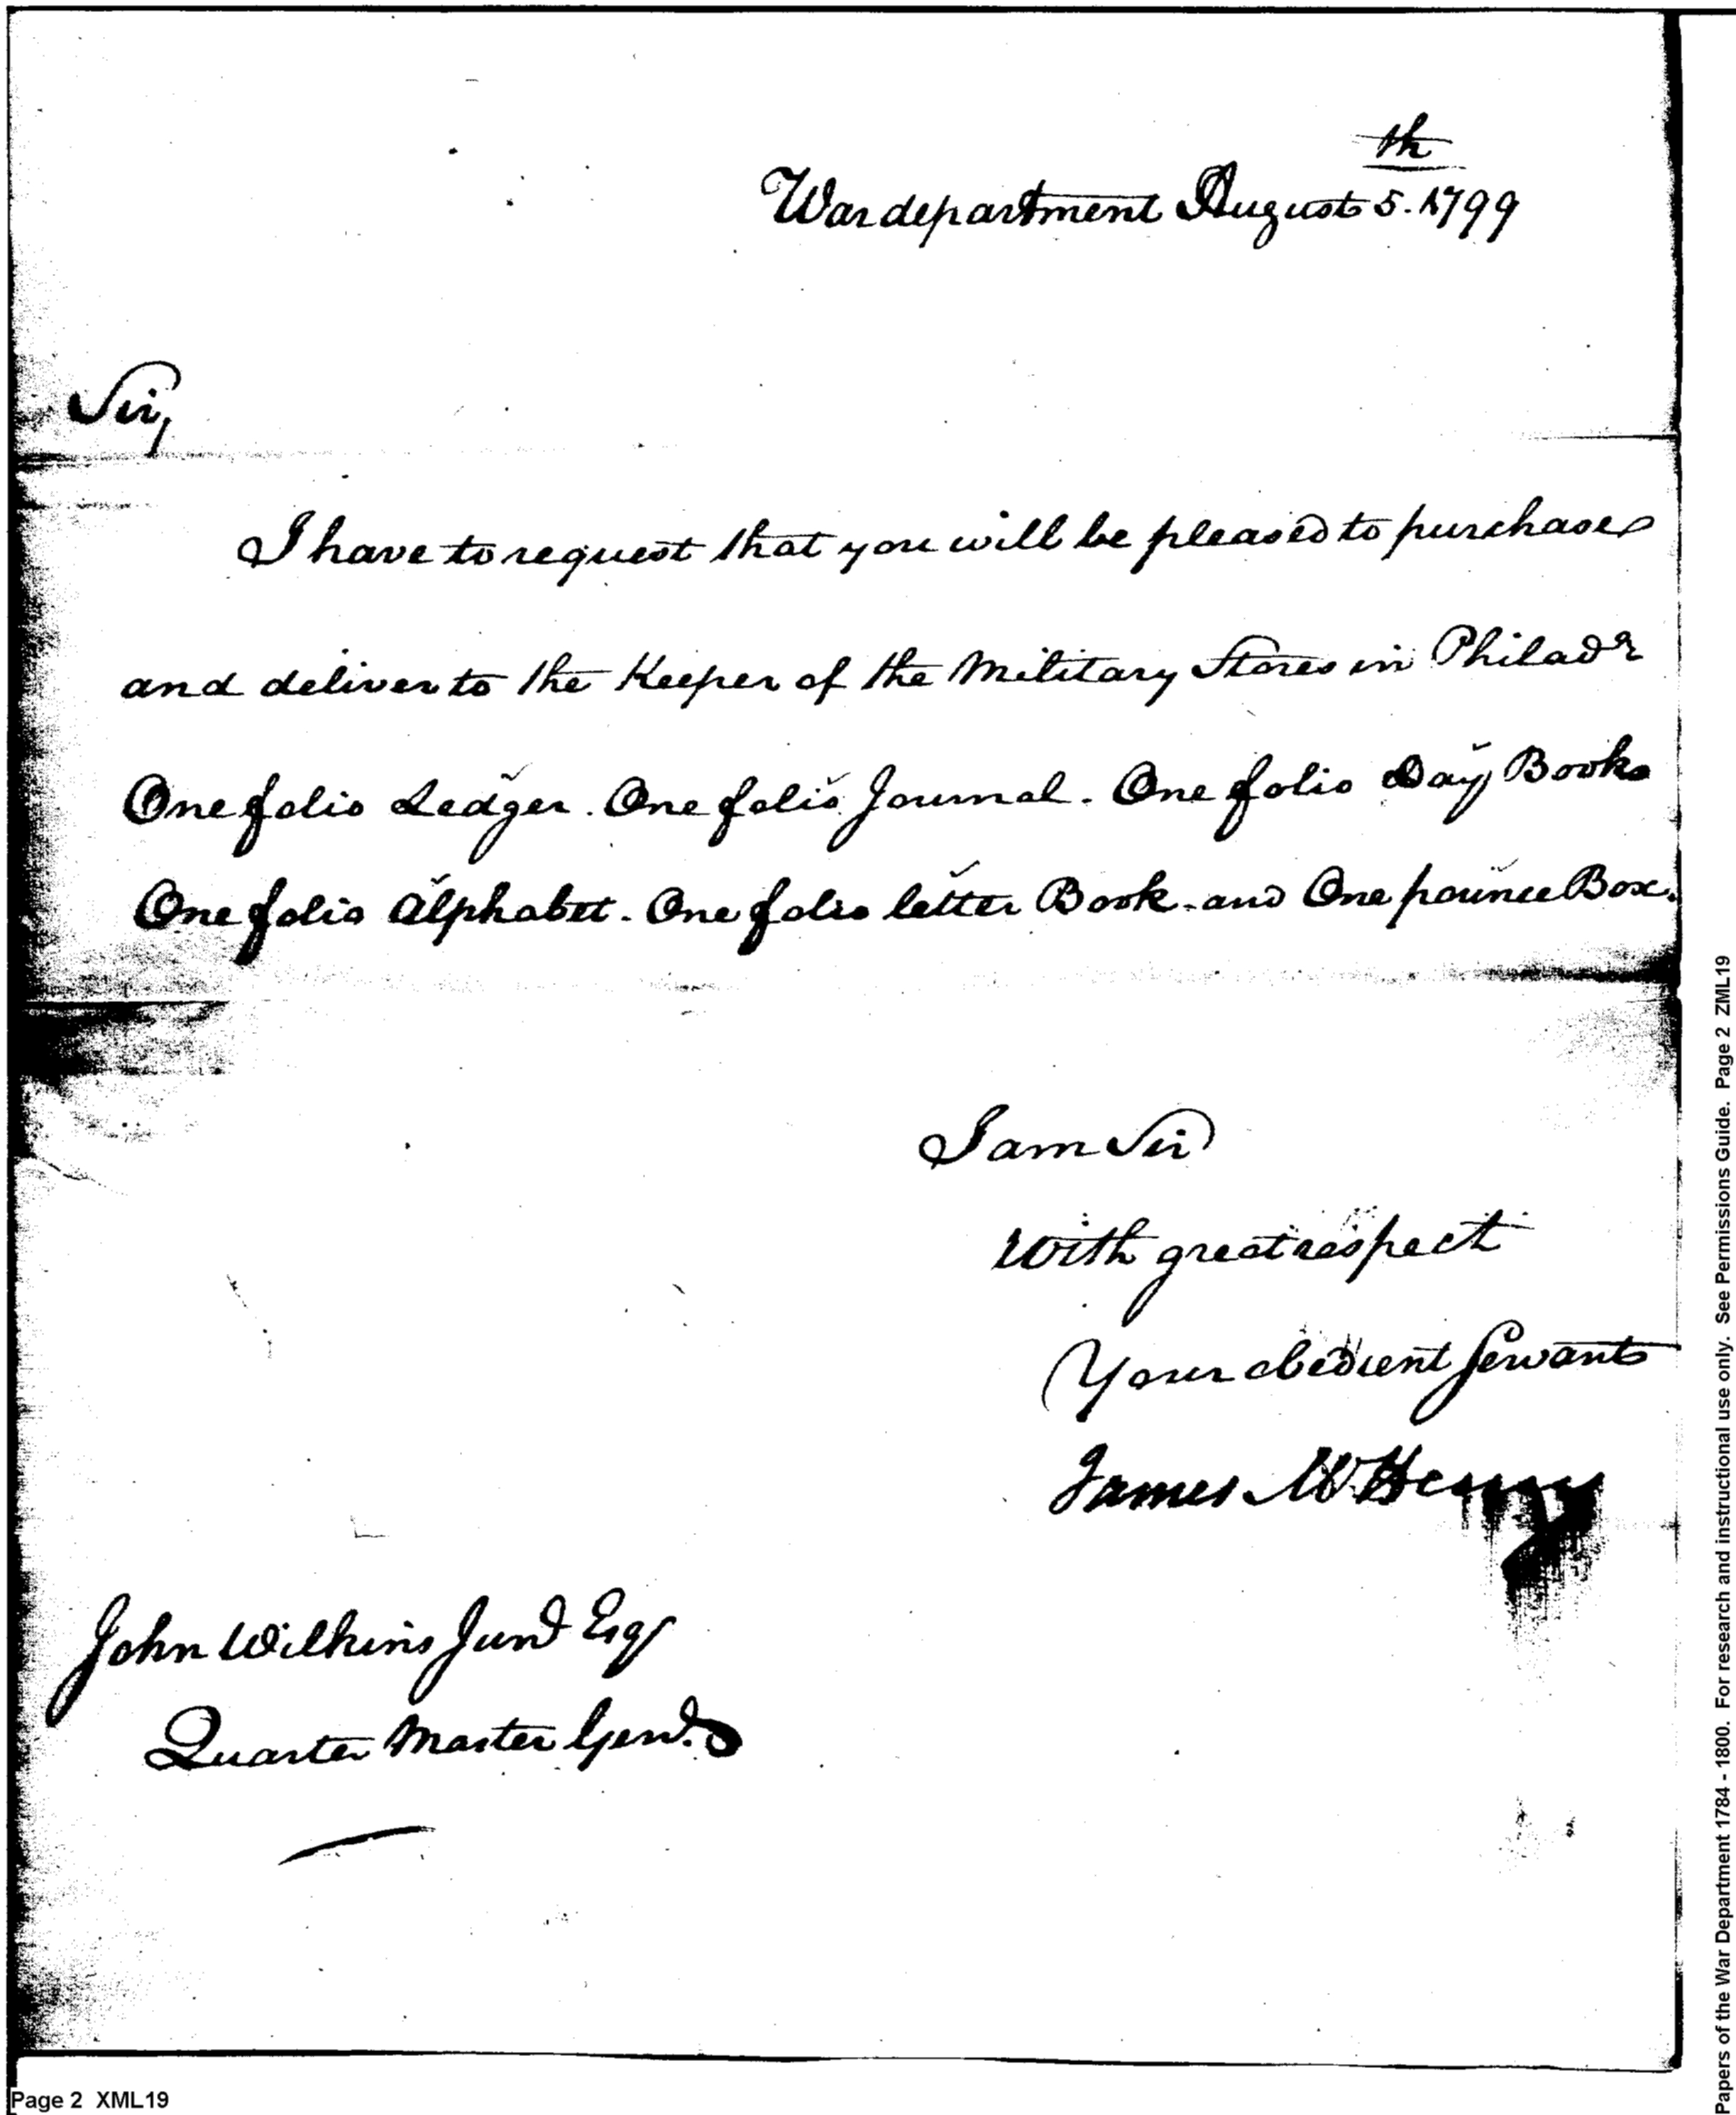 War department August 5.th 1799
Sir,
I have to request that you will be pleased to purchase
and deliver to the Keeper of the Military Stores in Philada
One folio Ledger. One folio Journal. One folio Day Book
One folio Alphabet. One folio letter Book. and One pounce Box.
I am Sir
With great respect
Your obedient Servant
James McHenry
John Wilkins Junr Esqr
Quarter Master Genl.
Page 2 XML19
Papers of the War Department 1784 - 1800. For research and instructional use only. See Permissions Guide. Page 2 ZML19